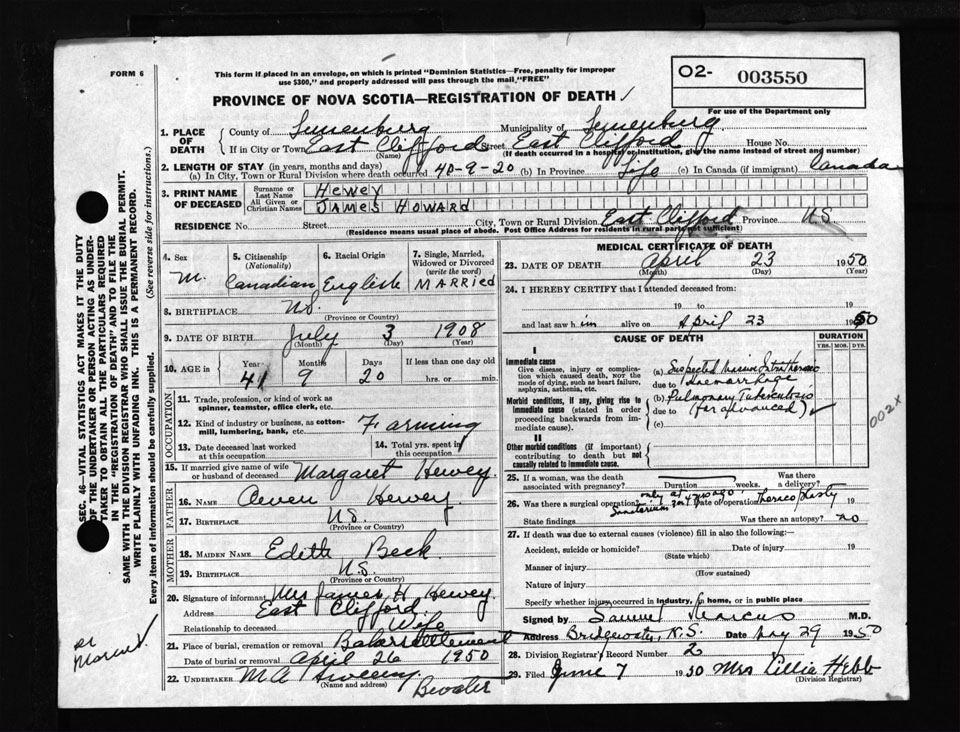 FORM 6
This form if placed in an envelope, on which is printed "Dominion Statistics—Free, penalty for improper
use $300," and properly addressed will pass through the mail "FREE"
O2- 003550
For use of the Department only
PROVINCE OF NOVA SCOTIA—REGISTRATION OF DEATH
1. PLACE OF DEATH { County of Lunenburg Municipality of Lunenburg
If in City or Town East Clifford Street East Clifford House No.
(Name) (If death occurred in a hospital or institution, give the name instead of street and number)
2. LENGTH OF STAY (in years, months and days)
(a) In City, Town or Rural Division where death occurred 40-9-20 (b) In Province Life (c) In Canada (if immigrant) Canada
3. PRINT NAME OF DECEASED { Surname or Last Name HEWEY
All Given or Christian Names JAMES HOWARD
RESIDENCE No. Street City, Town or Rural Division East Clifford Province N.S.
(Residence means usual place of abode. Post Office Address for residents in rural parts not sufficient)
4. Sex M.
5. Citizenship (Nationality) Canadian
6. Racial Origin English
7. Single, Married, Widowed or Divorced (write the word) MARRIED
8. BIRTHPLACE N.S.
(Province or Country)
9. DATE OF BIRTH July 3 1908
(Month) (Day) (Year)
10. AGE in { Years 41 Months 9 Days 20 If less than one day old
hrs. or min.
OCCUPATION
11. Trade, profession, or kind of work as
spinner, teamster, office clerk, etc.
12. Kind of industry or business, as cotton-
mill, lumbering, bank, etc. Farming
13. Date deceased last worked
at this occupation
14. Total yrs. spent in
this occupation
15. If married give name of wife
or husband of deceased Margaret Hewey
FATHER
16. NAME Owen Hewey
17. BIRTHPLACE N.S.
(Province or Country)
MOTHER
18. MAIDEN NAME Edith Beck
19. BIRTHPLACE N.S.
(Province or Country)
20. Signature of informant Mrs James H Hewey
Address East Clifford
Relationship to deceased Wife
21. Place of burial, cremation or removal Baker settlement
Date of burial or removal April 26 1950
22. UNDERTAKER M A Sweeny
(Name and address) Bwater
MEDICAL CERTIFICATE OF DEATH
23. DATE OF DEATH April 23 1950
(Month) (Day) (Year)
24. I HEREBY CERTIFY that I attended deceased from:
19 to 19
and last saw him alive on April 23 1950
CAUSE OF DEATH
DURATION
YRS. MOS. DYS.
I
Immediate cause
Give disease, injury or complica-
tion which caused death, NOT the
mode of dying, such as heart failure,
asphyxia, asthenia, etc.
(a) Suspected Massive Intrathoracic
due to Haemorrhage
Morbid conditions, if any, giving rise to
immediate cause (stated in order
proceeding backwards from im-
mediate cause).
(b) Pulmonary Tuberculosis
due to (far advanced)
(c)
002x
II
Other morbid conditions (if important)
contributing to death but not
causally related to immediate cause.
25. If a woman, was the death
associated with pregnancy? Duration weeks. Was there
a delivery?
26. Was there a surgical operation? Date of operation
Sanatorium
State findings Was there an autopsy? no
27. If death was due to external causes (violence) fill in also the following:
Accident, suicide or homicide? Date of injury 19
(State which)
Manner of injury
(How sustained)
Nature of injury
Specify whether injury occurred in industry, in home, or in public place
Signed by Samuel Marcus M.D.
Address Bridgewater, N.S. Date May 29 1950
28. Division Registrar's Record Number 2
29. Filed June 7 1950 Mrs Lillie Hebb
(Division Registrar)
SEC. 46—VITAL STATISTICS ACT MAKES IT THE DUTY
OF THE UNDERTAKER OR PERSON ACTING AS UNDER-
TAKER TO OBTAIN ALL THE PARTICULARS REQUIRED
IN THE "REGISTRATION OF DEATH" AND TO FILE THE
SAME WITH THE DIVISION REGISTRAR WHO SHALL ISSUE THE BURIAL PERMIT.
WRITE PLAINLY WITH UNFADING INK. THIS IS A PERMANENT RECORD.
Every item of information should be carefully supplied. (See reverse side for instructions.)